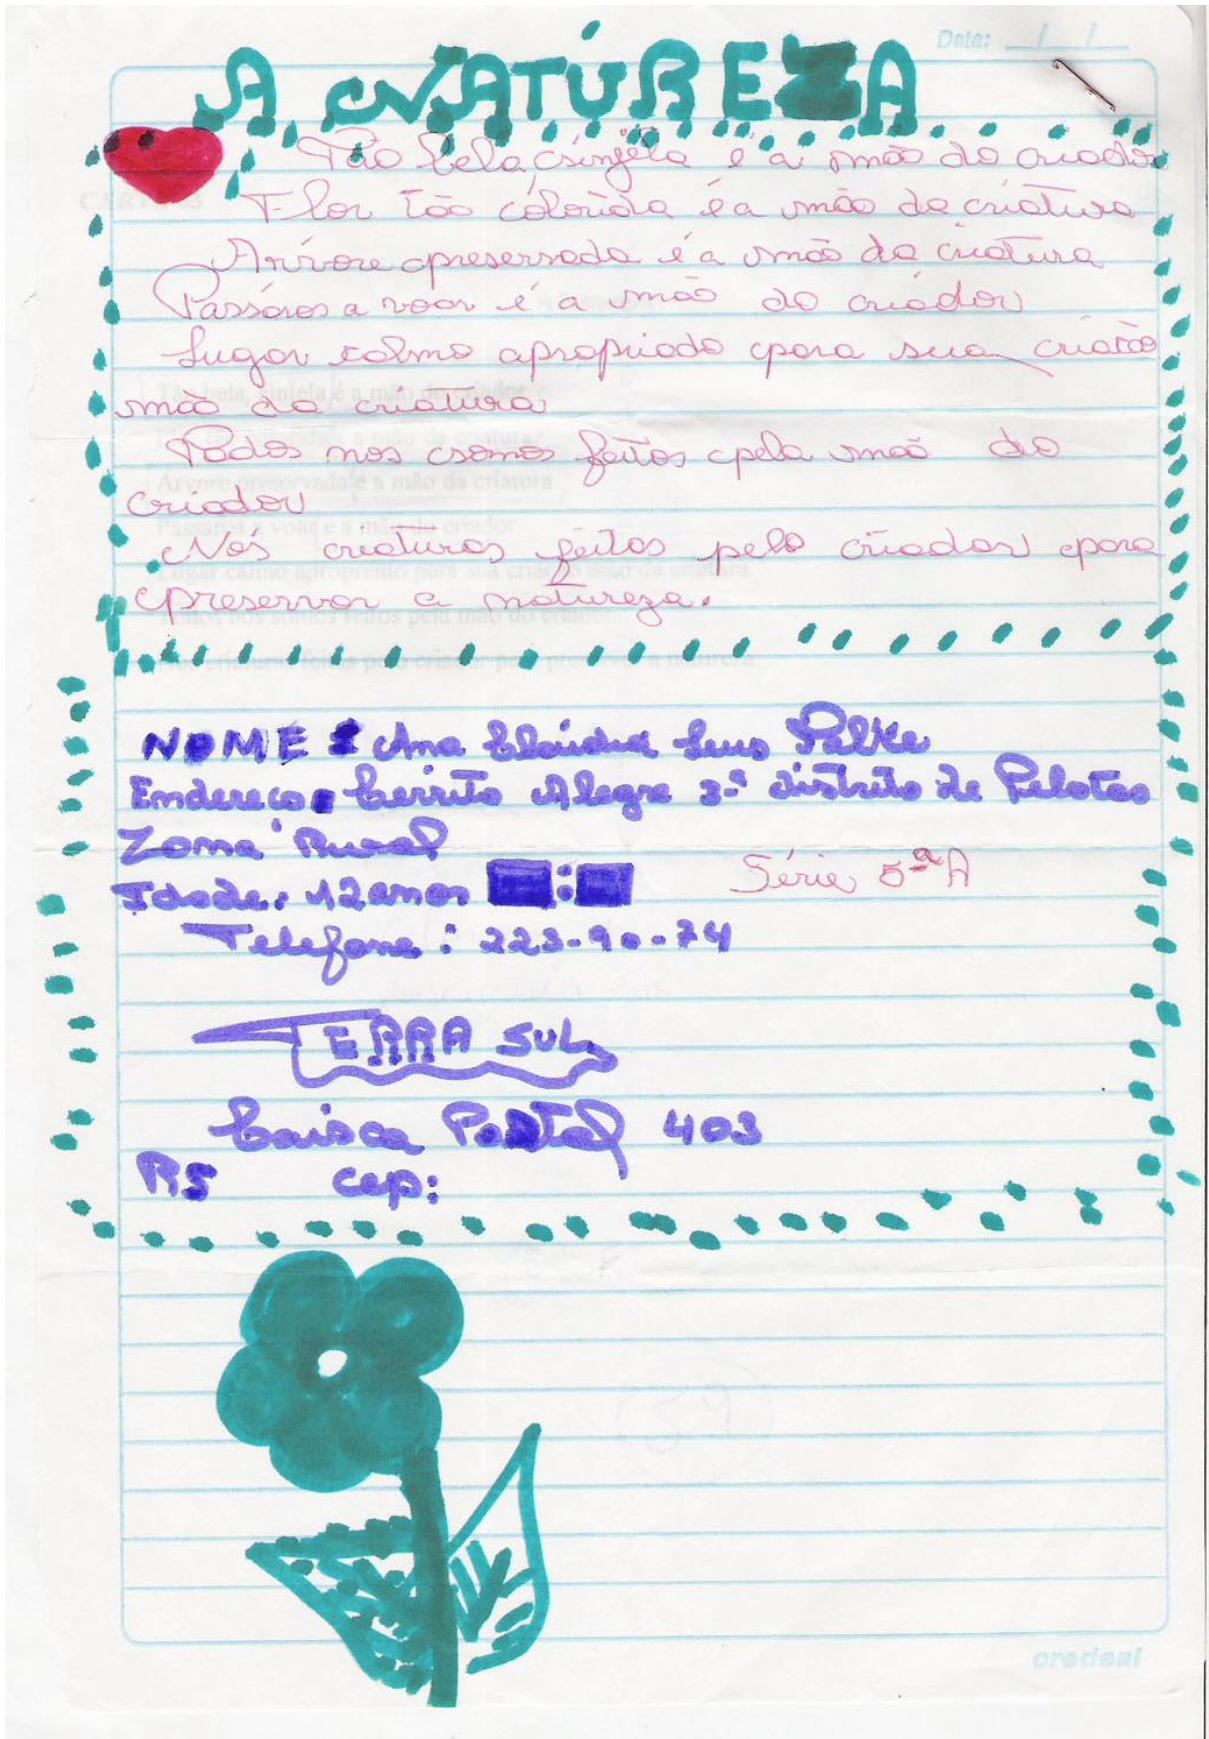 Data: / /
A NATUREZA
Tão bela, sinjela é a mão do criador
Flor tão colorida é a mão da criatura
Arvore preservada é a mão da criatura
Passáros a voar é a mão do criador
Lugar calmo apropriado para sua criação
mão da criatura
Todos nos somos feitos pela mão do
criador
Nós criaturas feitas pelo criador para
preservar a natureza.
NOME: Ana Claúdia Leus
Endereço: Cerrito Alegre 3º distrito de Pelotas
Zona Rural
Idade: 12 anos :
Série 5ªA
Telefone: 223-90-74
TERRA SUL
Caisca Postal 403
RS cep:
credeal